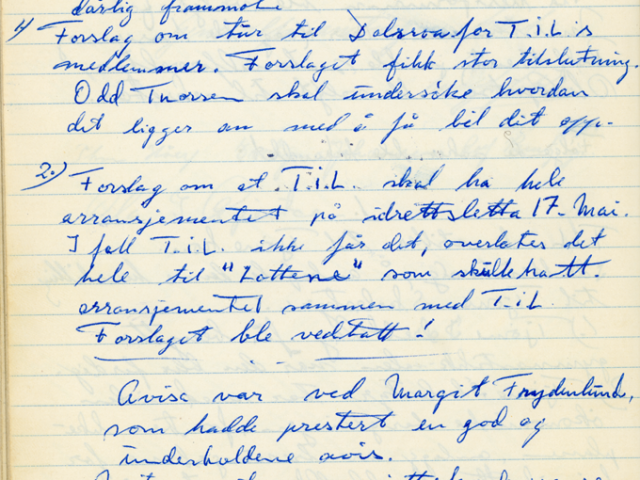 dårlig frammøte
1) Forslag om tur til for T.I.L.s
medlemmer. Forslaget fikk stor tilslutning.
Odd Thorsen skal undersøke hvordan
det ligger an med å få bil dit opp.
2.) Forslag om at T.I.L. skal ha hele
arransjementet på idrettsletta 17. Mai.
I fall T.I.L. ikke får det, overlates det
hele til "Lottene" som skulle hatt
arransjementet sammen med T.I.L.
Forslaget ble vedtatt!
Avisa var ved Margit Frydenlund,
som hadde prestert en god og
underholdene avis.